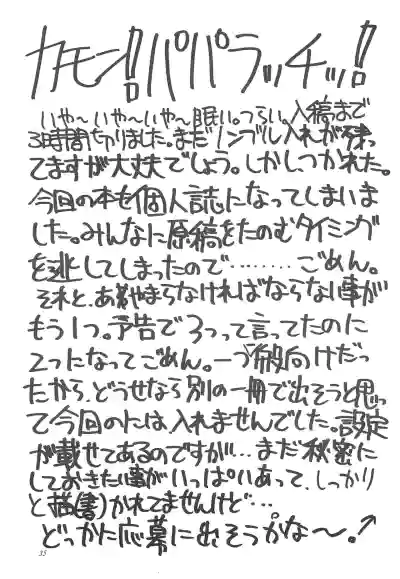 カモン!パパラッチッ!
いや〜いや〜いや〜眠い。つらい。入稿まで
3時間切りました。まだノンブル入れが残っ
てますが大丈夫でしょう。しかしつかれた。
今回の本も個人誌になってしまいま
した。みんなに原稿をたのむタイミング
を逃してしまったので………ごめん。
それと、あやまらなければならない事が
もう1つ。予告で3つって言ってたのに
2つになってごめん。一つ一般向けだっ
たから、どうせなら別の一冊で出そうと思っ
て今回のには入れませんでした。設定
が載せてあるのですが…まだ秘密に
しておきたい事がいっぱいあって、しっかり
と描(書)かれてませんけど…
どっかに応募に出そうかな〜。↗
35